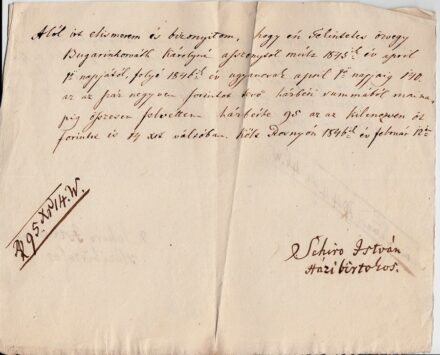 Alól irt elismerem és bizonyitom, hogy én Tekintetes özvegy
Bugarinhorváth Károlyné asszonytól mult 1845ik év april
1ő napjától, folyó 1846ik év ugyancsak april 1ő napjaig 140.
az az száz negyven forintot tevő házbéri summából mai na-
pig összesen felvettem házbérbe 95 az az kilenczven öt
forintot is 14 xrt váltóban. Költ Rosnyón 1846ik év február 12én
95 Xr 14. W.
Schiro István
Házi birtokos.